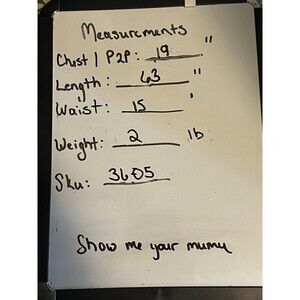 Measurements
Chest / P2P: 19 "
Length: 63 "
Waist: 15 '
Weight: 2 lb
Sku: 3605
Show me your mumu